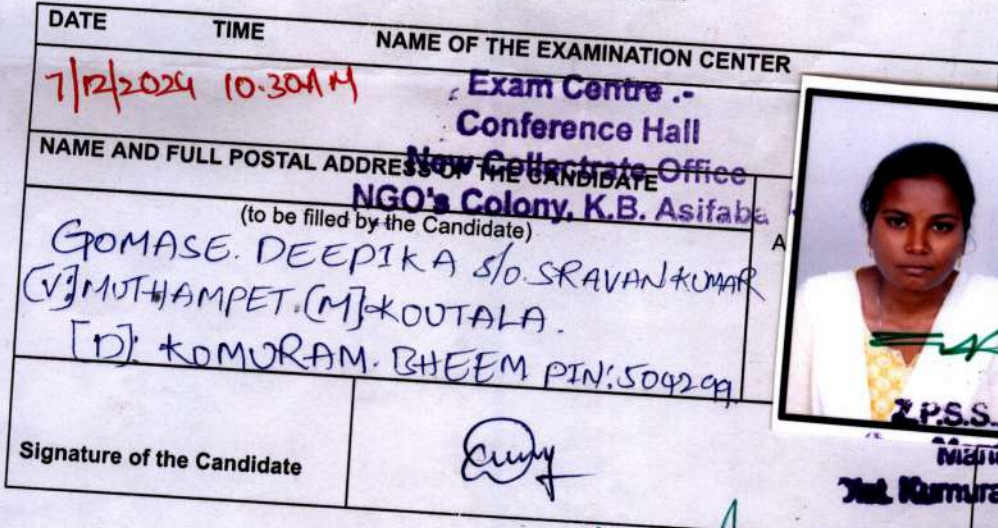 DATE TIME NAME OF THE EXAMINATION CENTER
7/12/2024 10.30AM
Exam Centre .-
Conference Hall
New Collectrate Office
NGO's Colony, K.B. Asifaba
NAME AND FULL POSTAL ADDRESS OF THE CANDIDATE
(to be filled by the Candidate)
A
GOMASE. DEEPIKA S/O. SRAVAN KUMAR
[V] MUTHAMPET. [M] KOUTALA.
[D]: KOMURAM. BHEEM PIN: 504299
Signature of the Candidate
Z.P.S.S.
Dist. Kumura